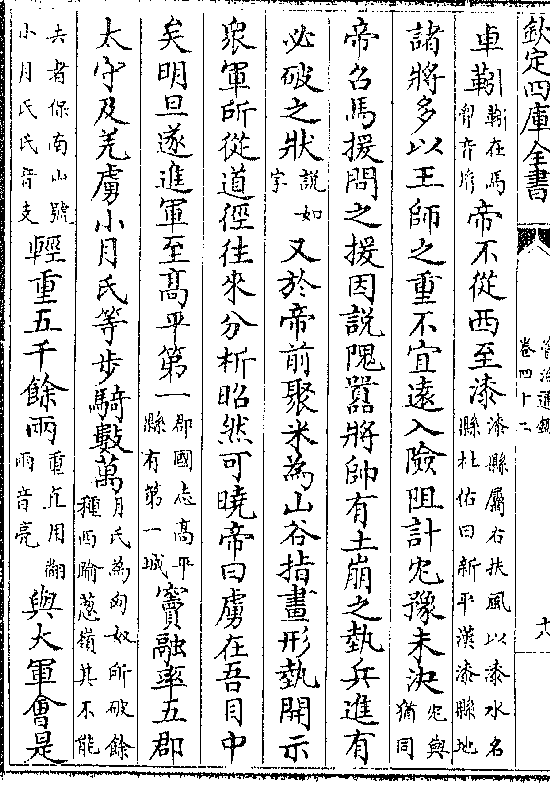 欽定四庫全書
資治通鑑
卷四十二
十八
車靷靷在馬胷音胤帝不從西至漆漆縣屬右扶風以漆水名縣杜佑曰新平漢漆縣地
諸將多以王師之重不宜遠入險阻計冘豫未決冘與猶同
帝召馬援問之援因說隗囂將帥有土崩之埶兵進有
必破之狀說如字又於帝前聚米為山谷指畫形埶開示
衆軍所從道徑往來分析昭然可曉帝曰虜在吾目中
矣明旦遂進軍至高平第一郡國志高平縣有第一城竇融率五郡
太守及羌虜小月氏等步騎數萬月氏為匈奴所破餘種西踰蔥嶺其不能
去者保南山號小月氏氏音支輕重五千餘兩重直用翻兩音亮與大軍會是